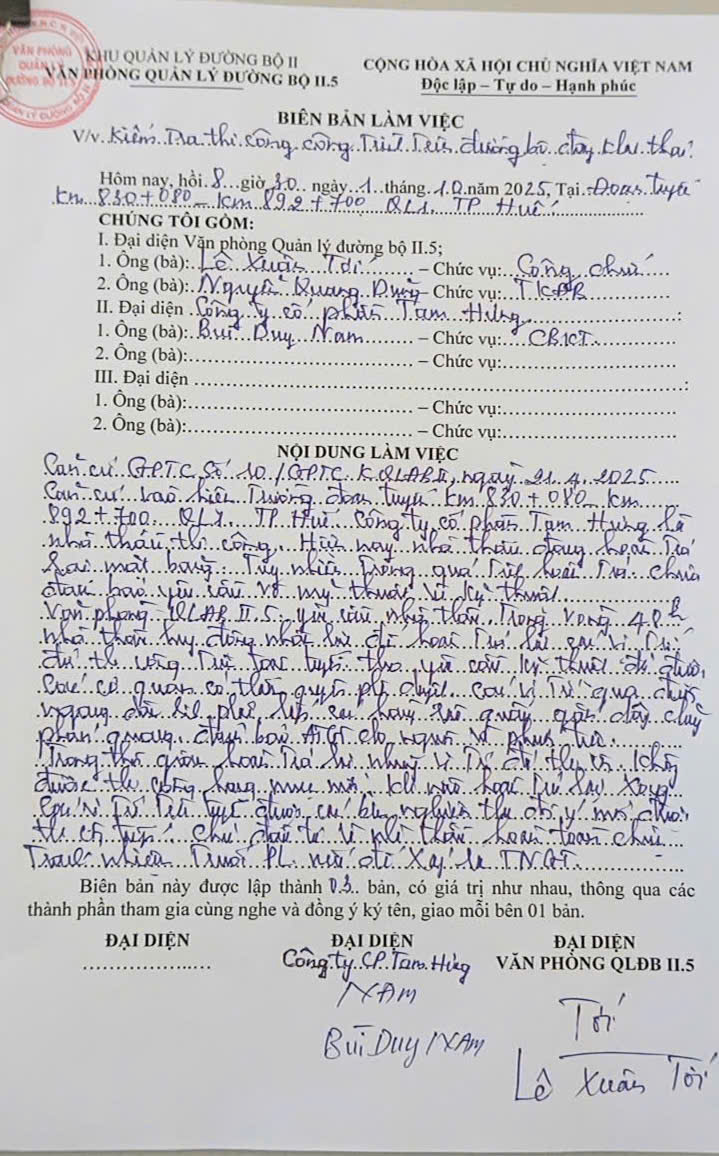 VĂN PHÒNG
QUẢN LÝ
ĐƯỜNG BỘ II.5
KHU QUẢN LÝ ĐƯỜNG BỘ II
VĂN PHÒNG QUẢN LÝ ĐƯỜNG BỘ II.5
CỘNG HÒA XÃ HỘI CHỦ NGHĨA VIỆT NAM
Độc lập – Tự do – Hạnh phúc
BIÊN BẢN LÀM VIỆC
V/v. Kiểm tra thi công công trình trên đường bộ đang khai thác
Hôm nay, hồi 8 giờ 30 ngày 1 tháng 10 năm 2025, Tại: Đoạn tuyến
Km 830+080 – Km 892+700 QL1. TP Huế.
CHÚNG TÔI GỒM:
I. Đại diện Văn phòng Quản lý đường bộ II.5;
1. Ông (bà): Lê Xuân Tới – Chức vụ: Công chức
2. Ông (bà): Nguyễn Quang Dũng – Chức vụ: TKĐB
II. Đại diện Công ty cổ phần Tam Hưng :
1. Ông (bà): Bùi Duy Nam – Chức vụ: CBKT
2. Ông (bà): – Chức vụ:
III. Đại diện :
1. Ông (bà): – Chức vụ:
2. Ông (bà): – Chức vụ:
NỘI DUNG LÀM VIỆC
Căn cứ GPTC số 10/GPTC.KQLĐBII, ngày 21.4.2025
Căn cứ vào hiện trường đoạn tuyến Km 830+080 – Km
892+700 QL1. TP Huế Công ty cổ phần Tam Hưng là
nhà thầu thi công. Hiện nay nhà thầu đang hoàn trả
lại mặt bằng. Tuy nhiên trong quá trình hoàn trả chưa
đảm bảo yêu cầu về mỹ thuật và kỹ thuật.
Văn phòng QLĐB II.5 yêu cầu nhà thầu trong vòng 48h
nhà thầu huy động nhân lực để hoàn trả lại các vị trí
đã thi công trên toàn tuyến theo yêu cầu kỹ thuật đã được
các cơ quan có thẩm quyền phê duyệt. Các vị trí qua đường
ngang dân sinh phải lắp rào quây gắn dây
phản quang đảm bảo ATGT cho người và phương tiện.
Trong thời gian hoàn trả lại những vị trí đã thi công không
được thi công hạng mục mới, khi nào hoàn trả lại xong
các vị trí trên tuyến được các bên nghiệm thu đồng ý mới được
thi công tiếp. Chủ đầu tư và nhà thầu hoàn toàn chịu
trách nhiệm trước PL nếu để xảy ra TNGT.
Biên bản này được lập thành 03 bản, có giá trị như nhau, thông qua các
thành phần tham gia cùng nghe và đồng ý ký tên, giao mỗi bên 01 bản.
ĐẠI DIỆN
ĐẠI DIỆN
Công ty CP Tam Hưng
NAM
Bùi Duy NAM
ĐẠI DIỆN
VĂN PHÒNG QLĐB II.5
Tới
Lê Xuân Tới